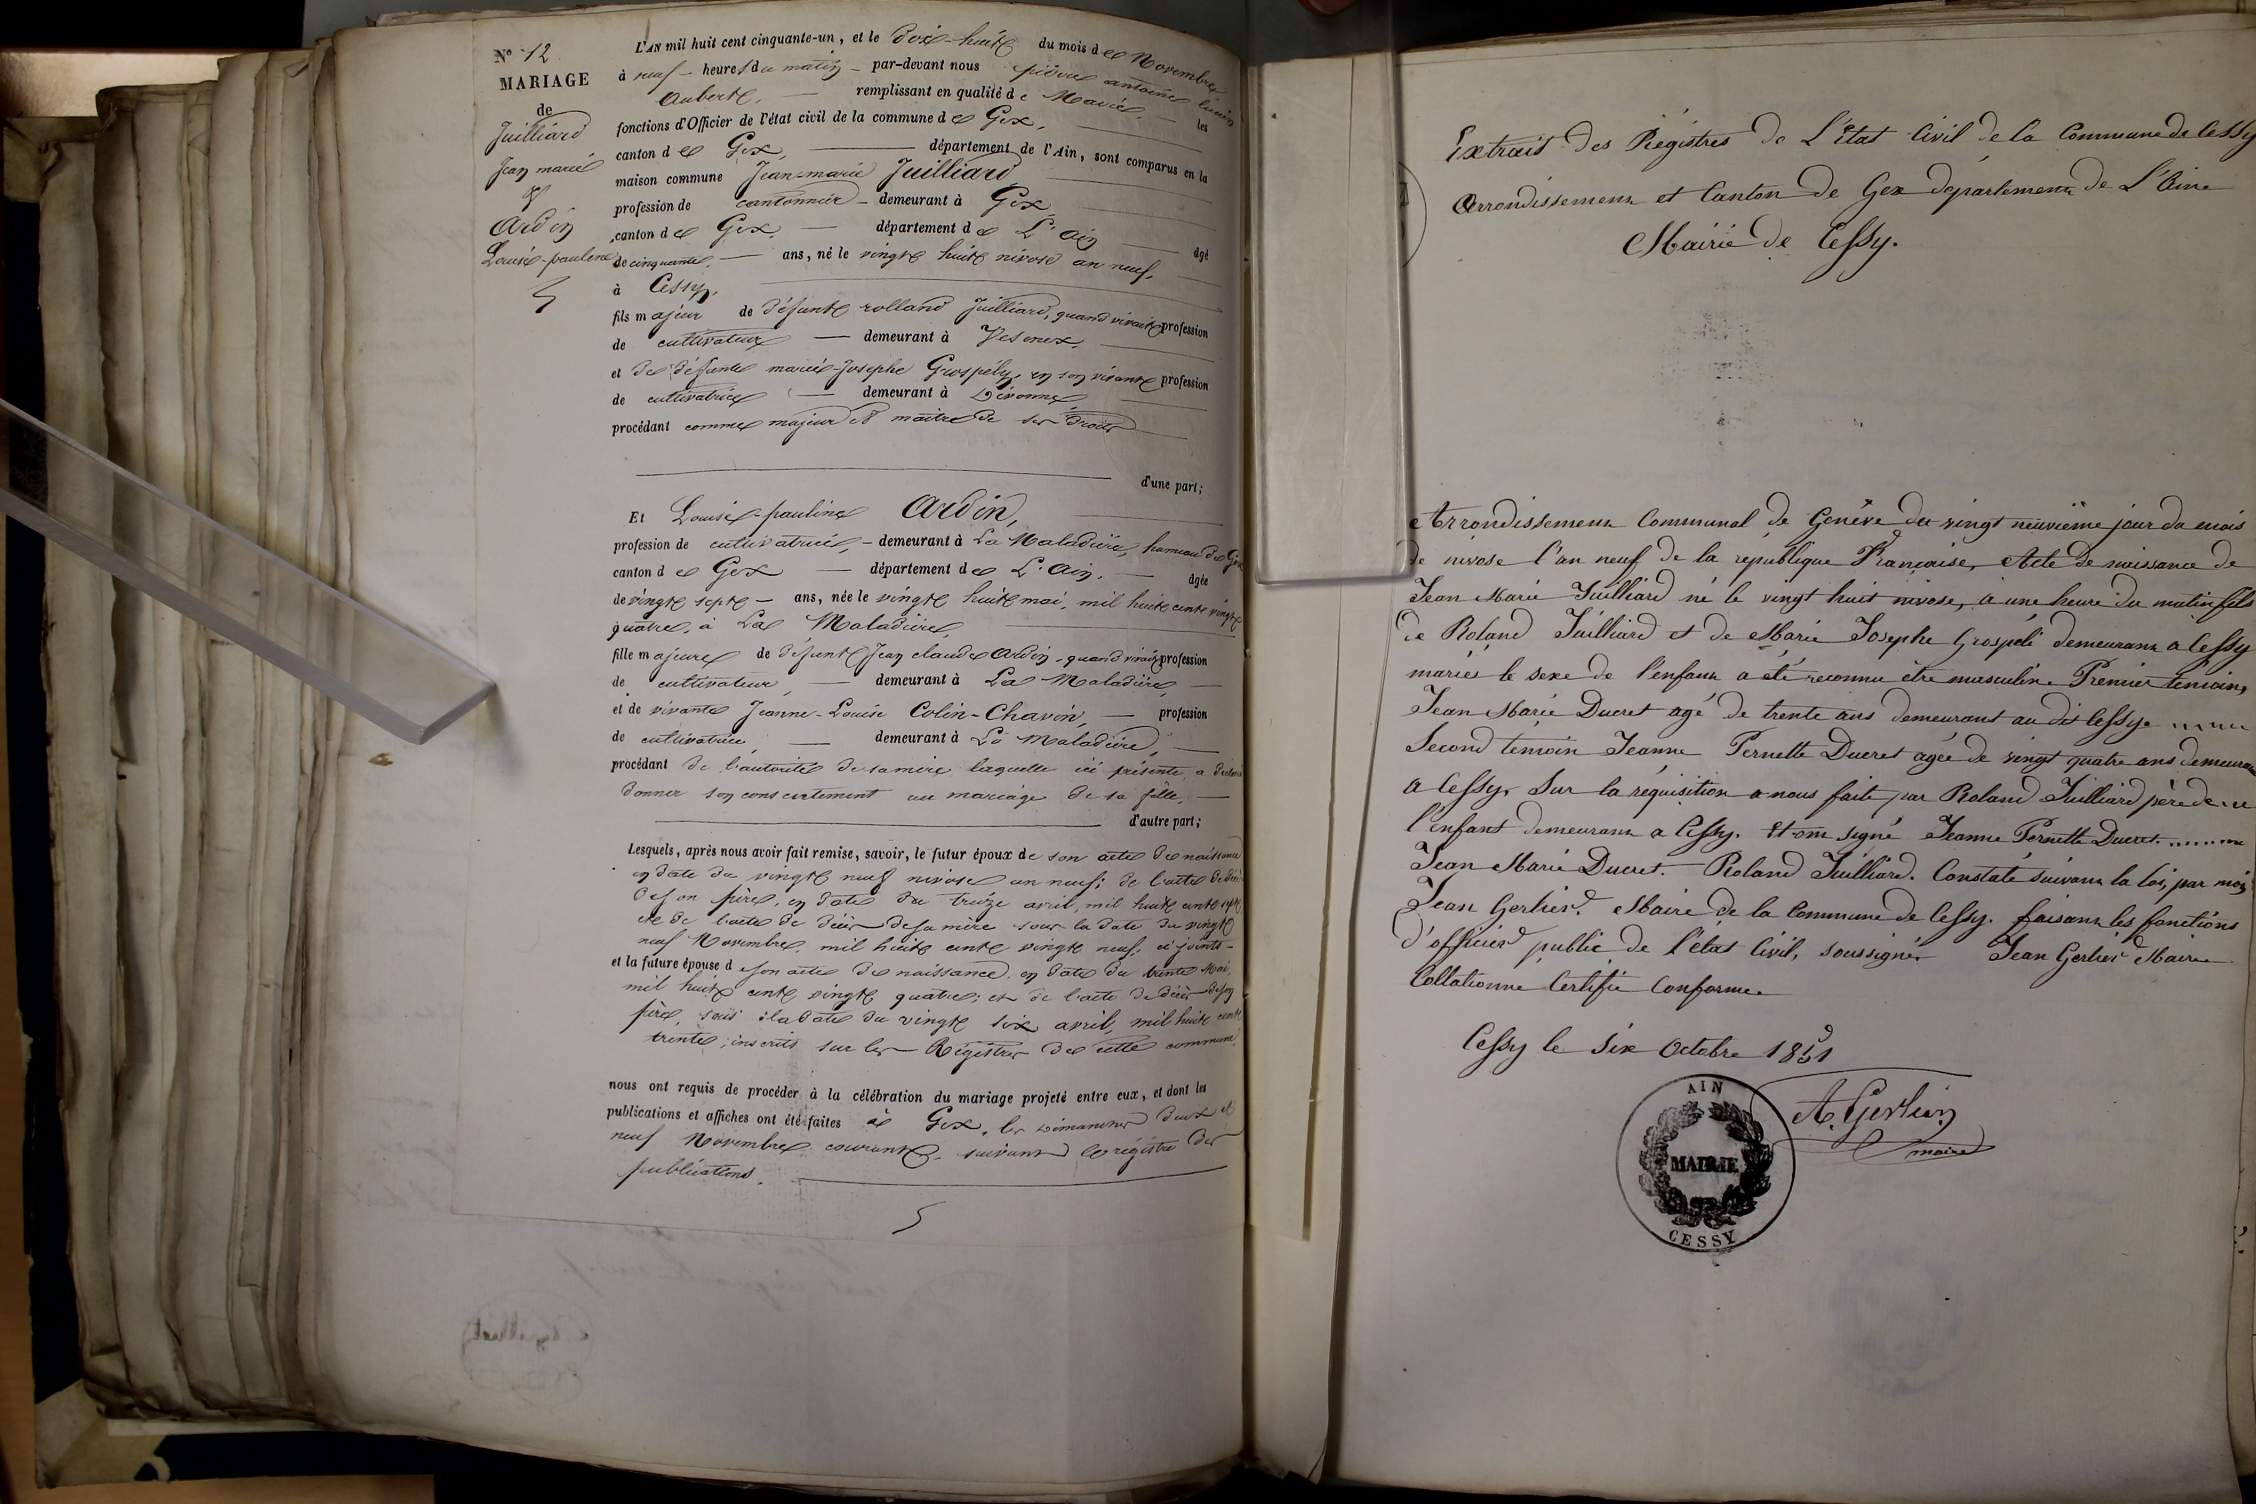 N° 12
MARIAGE
de
Juilliard
Jean marie
&
Ardin
Louise-pauline
L'AN mil huit cent cinquante-un, et le dix-huit du mois de Novembre
à neuf heures du matin par-devant nous pierre antoine
Aubert, remplissant en qualité de Maire, les
fonctions d'Officier de l'état civil de la commune de Gex,
canton de Gex, département de l'Ain, sont comparus en la
maison commune Jean-marie Juilliard
profession de cantonnier demeurant à Gex
canton de Gex département de L'Ain âgé
de cinquante ans, né le vingt huit nivose an neuf,
à Cessy,
fils majeur de défunt rolland Juilliard, quand vivait profession
de cultivateur demeurant à Vesenex,
et de défunte marie-Josephe Grospély, en son vivant profession
de cultivatrice demeurant à Divonne
procédant comme majeur et maitre de ses droits
d'une part;
Et Louise-pauline Ardin,
profession de cultivatrice, demeurant à La Maladière, hameau de Gex
canton de Gex département de L'Ain, âgée
de vingt sept ans, née le vingt huit mai, mil huit cent vingt
quatre, à La Maladière,
fille majeure de défunt Jean claude Ardin, quand vivait profession
de cultivateur, demeurant à La Maladière,
et de vivante Jeanne-Louise Colin-Chavin, profession
de cultivatrice, demeurant à La Maladière,
procédant de l'autorité de sa mère laquelle ici présente, a déclaré
donner son consentement au mariage de sa fille,
d'autre part;
Lesquels, après nous avoir fait remise, savoir, le futur époux de son acte de naissance
en date du vingt neuf nivose an neuf; de l'acte de décès
de son père, en date du treize avril, mil huit cent sept
et de l'acte de décès de sa mère sous la date du vingt
neuf Novembre, mil huit cent vingt neuf, ci joints
et la future épouse de son acte de naissance, en date du trente Mai,
mil huit cent vingt quatre; et de l'acte de décès de son
père, sous la date du vingt six avril, mil huit cent
trente; inscrits sur les Régistres de cette commune,
nous ont requis de procéder à la célébration du mariage projeté entre eux, et dont les
publications et affiches ont été faites à Gex, les dimanches deux et
neuf Novembre courant, suivant le régistre des
publications.
Extrait des Régistres de L'Etat Civil de la Commune de Cessy
Arrondissement et Canton de Gex département de L'Ain
Mairie de Cessy.
Arrondissement Communal de Genêve du vingt neuvième jour du mois
de nivose l'an neuf de la république Française, Acte de naissance de
Jean Marie Juilliard né le vingt huit nivose, à une heure du matin fils
de Roland Juilliard et de Marie Josephe Grospéli demeurant a Cessy
mariés le sexe de l'enfant a été reconnu être masculin. Premier témoin,
Jean Marie Ducret agé de trente ans demeurant au dit Cessy.
Second temoin Jeanne Pernette Ducret agée de vingt quatre ans demeurant
a Cessy, Sur la réquisition a nous faite par Roland Juilliard père de
l'enfant demeurant a Cessy. Et ont signé Jeanne Pernette Ducret.
Jean Marie Ducret. Roland Juilliard. Constaté suivant la loi, par moi
Jean Gerlier. Maire de la Commune de Cessy. faisant les fonctions
d'officier public de l'état Civil, soussigné. Jean Gerlier Maire
Collationné Certifié Conforme.
Cessy le Six Octobre 1851
A. Gerlier
maire
AIN
MAIRIE
CESSY